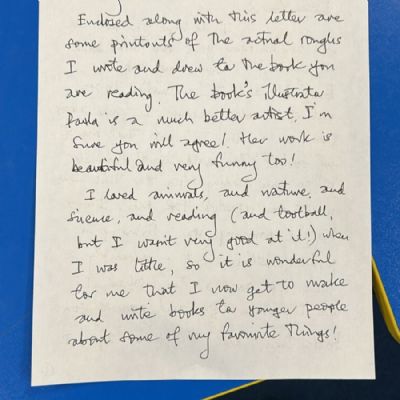 Enclosed along with this letter are
some printouts of the actual roughs
I wrote and drew for the book you
are reading. The book's illustrator
Paula is a much better artist, I'm
sure you will agree! Her work is
beautiful and very funny too!
I loved animals, and nature, and
science, and reading (and football,
but I wasn't very good at it!) when
I was little, so it is wonderful
for me that I now get to make
and write books for younger people
about some of my favourite things!